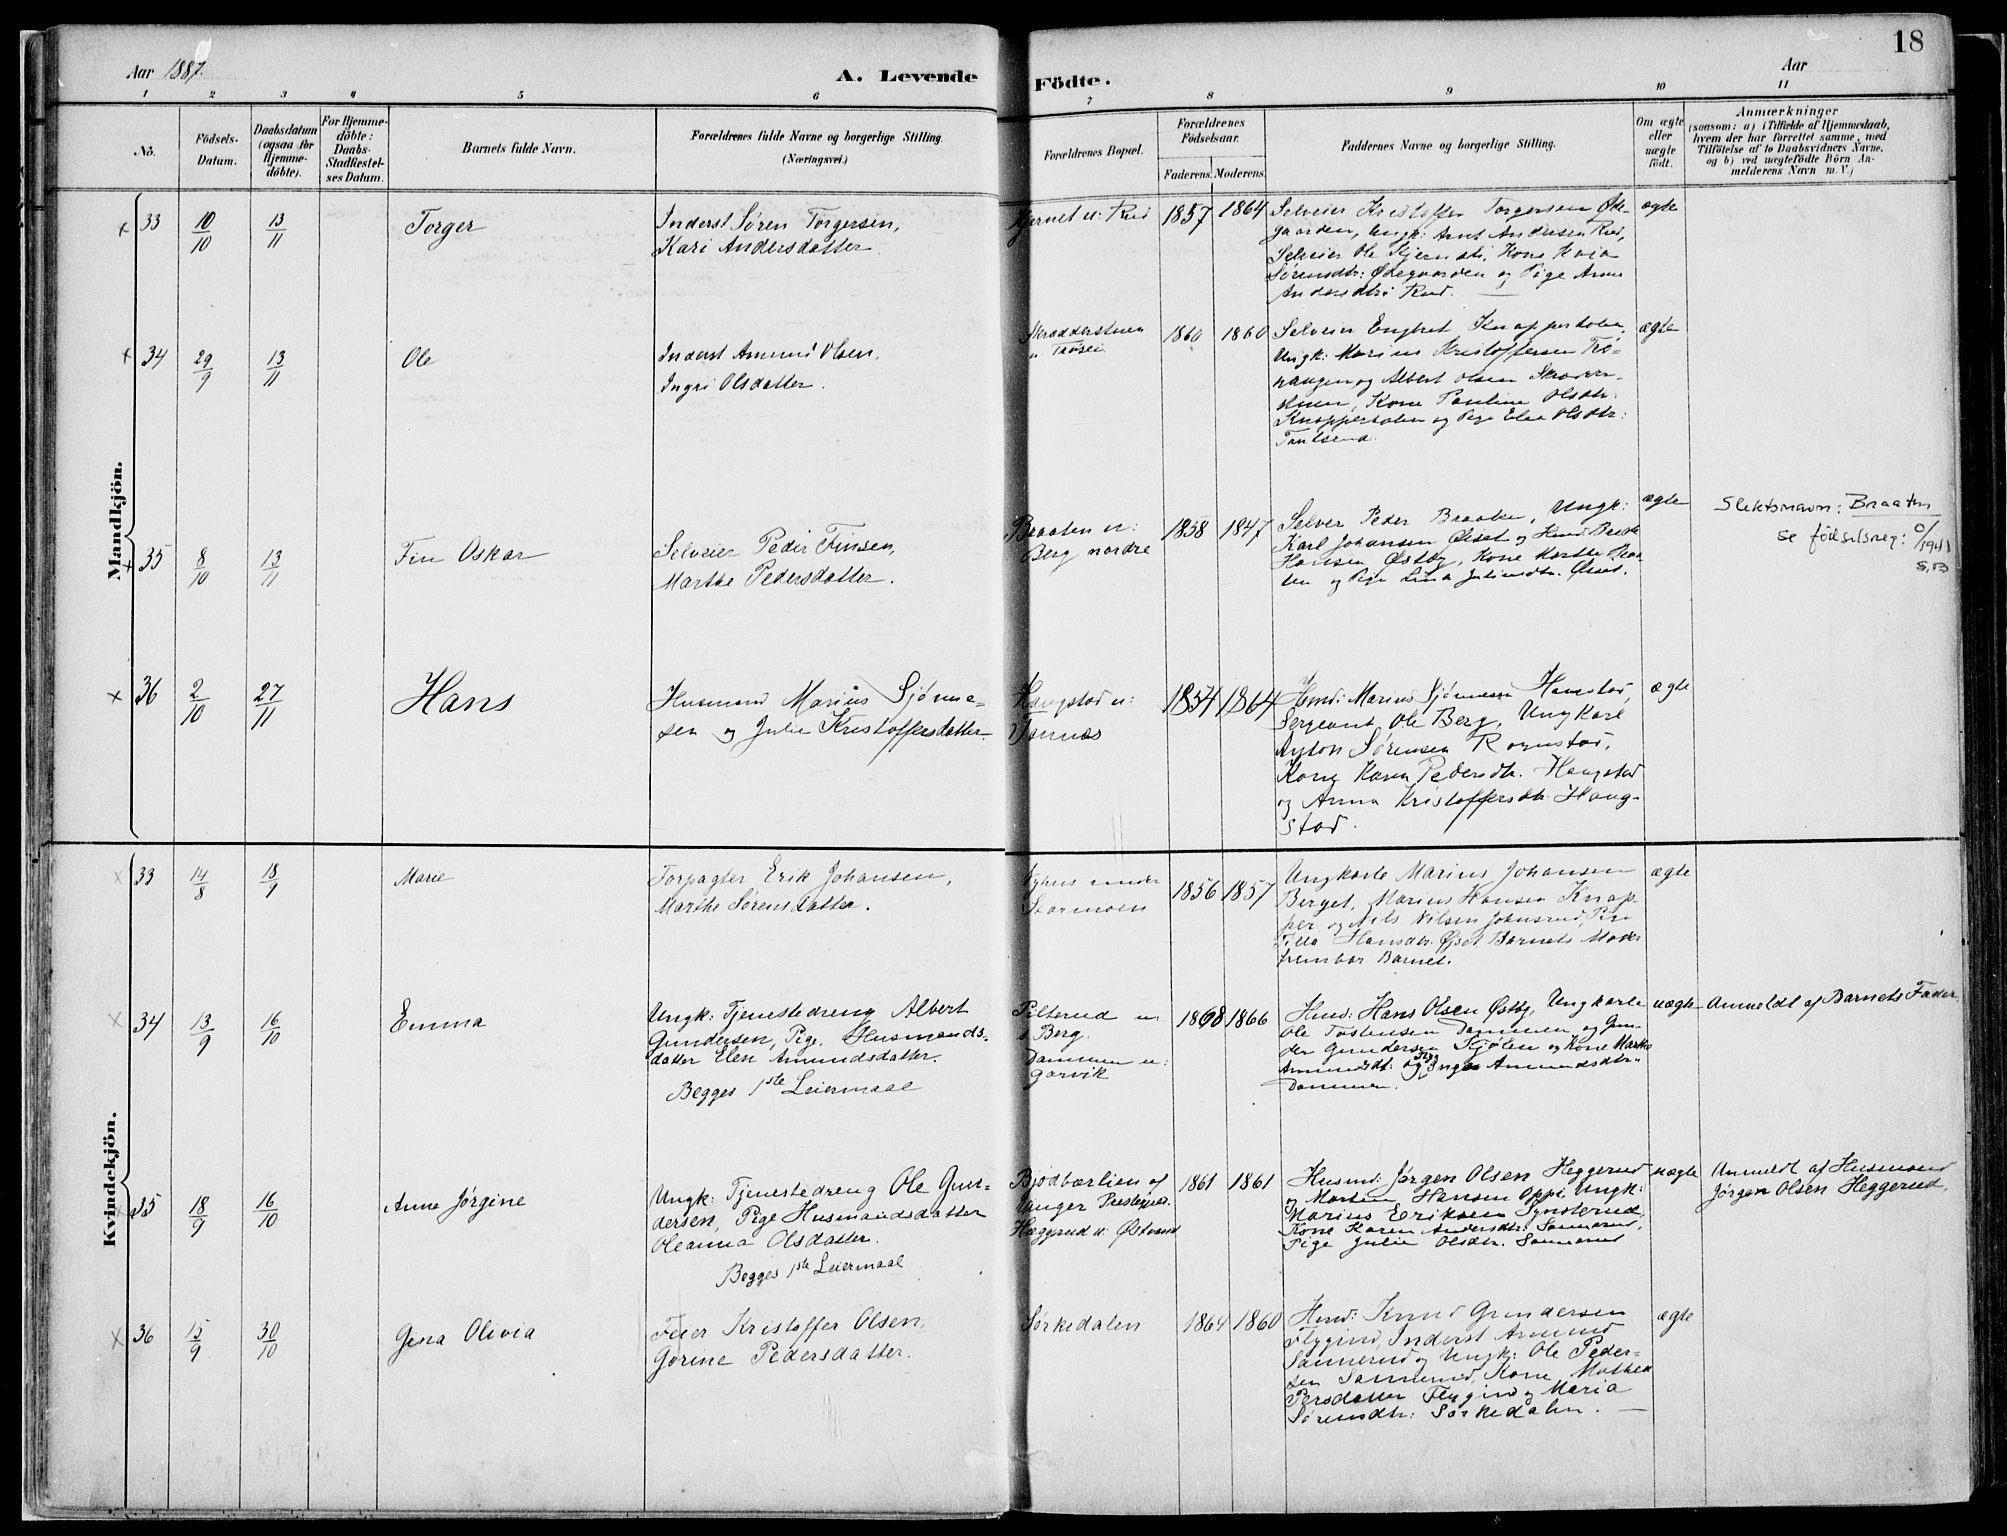 18
Aar 1887.
A. Levende Födte.
Aar
1 2 3 4 5 6 7 8 9 10 11
No.
Födsels-Datum.
Daabsdatum (ogsaa for Hjemmedöbte).
For Hjemmedöbte: Daabs-Stadfæstelses Datum.
Barnets fulde Navn.
Forældrenes fulde Navne og borgerlige Stilling. (Næringsvei.)
Forældrenes Bopæl.
Forældrenes Födselsaar.
Faderens. Moderens.
Faddernes Navne og borgerlige Stilling.
Om ægte eller uægte födt.
Anmærkninger
(saasom: a) i Tilfælde af Hjemmedaab,
hvem der har forrettet samme, med
Tilföielse af to Daabsvidners Navne,
og b) ved uægtefödte Börn An-
melderens Navn m. V.)
Mandkjön.
× 33 10/10 13/11 Torger
Inderst Søren Torgersen,
Kari Andersdatter
Kjernet u: Rud 1857 1864
Selveier Kristoffer Torgersen Øde-
gaarden, Ungk: Arnt Andersen Rud,
Selveier Ole Kjernsti, Kone Kaja
Sørensdtr: Ødegaarden og Pige Anne
Andersdtr: Rud. —
ægte
× 34 29/9 13/11 Ole
Inderst Amund Olsen,
Ingri Olsdatter.
Skrædderstuen
u: 1860 1860
Selveier Engbret Knappertolen,
Ungk: Marius Kristoffersen Trø-
haugen og Albert Olsen Skrædder-
stuen, Kone Pauline Olsdtr:
Knappertolen og Pige Elen Olsdtr:
ægte
× 35 8/10 13/11 Fin Oskar
Selveier Peder Finsen,
Marthe Pedersdatter.
Braaten u:
Berg nordre 1858 1847
Selveier Peder Braaten, Ungk:
Karl Johansen Ølset og Husmd:
Hansen Østby, Kone Marthe Braa-
ten og Pige Lina Juliusdtr. Ølset.
ægte
Slektsnavn: Braaten
se fødselsreg: 0/1941
S.B
× 36 2/10 27/11 Hans
Husmand Marius Sjønne-
sen og Julie Kristoffersdatter.
Haugstad u:
1854 1864
Husmd: Marius Sjønnesen Haugstad,
Sergeant Ole Berg, Ungkarl
Anton Sørensen Rognstad,
Kone Karen Pedersdtr. Haugstad
og Anna Kristoffersdtr. Haug-
stad.
ægte
Kvindekjön.
× 33 14/8 18/9 Marie
Forpagter Erik Johansen,
Marthe Sørensdatter.
Nyhus under
Stormoen 1856 1857
Ungkarle Marius Johansen
Berget, Marius Hansen Knap-
per og Nils Nilsen Johnsrud, Pige
Hansdtr. Øiset Barnets Moder
frembar Barnet.
ægte
× 34 13/9 16/10 Emma
Ungk: Tjenestedreng Albert
Gundersen, Pige, Husmands-
datter Elen Amundsdatter.
Begges 1ste Leiermaal
Pilterud u:
s. Berg.
Dammen u:
Garvik 1868 1866
Husmd: Hans Olsen Østby, Ungkarle
Ole Tostensen Dammen og Gun-
der Gundersen Kjølen og Kone Marthe
Amundsdt: og Pige Inge Amundsdtr:
Dammen.
uægte
Anmeldt af Barnets Fader
35 18/9 16/10 Anne Jørgine
Ungk: Tjenestedreng Ole Gun-
dersen, Pige Husmandsdatter
Oleanna Olsdatter.
Begges 1ste Leiermaal
Bjødbærlien af
Vanger Prestegjeld.
Heggerud u: Østvand 1861 1861
Husmd: Jørgen Olsen Heggerud
og Morten Hansen Oppi, Ungk:
Marius Eriksen Synsterud,
Kone Karen Andersdtr: Sannerud,
Pige Julie Olsdtr. Sannerud
uægte
Anmeldt af Husmand
Jørgen Olsen Heggerud.
× 36 15/9 30/10 Gina Olivia
Feier Kristoffer Olsen,
Gorine Pedersdatter.
Sørkedalen 1864 1860
Husmd: Knud Gundersen
Flygind, Inderst Amund
Sannerud og Ungk: Ole Peder-
sen Sannerud, Kone Mathea
Persdatter Flygind og Maria
Sørensdtr: Sørkedalen. —
ægte